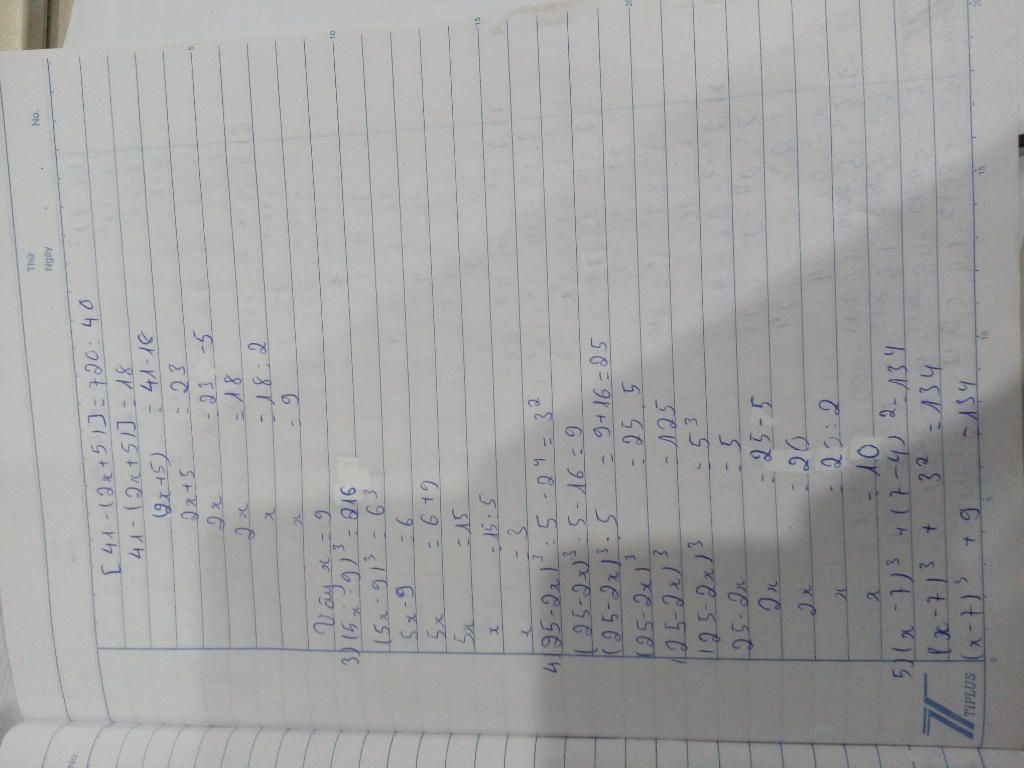 No.
Thứ
Ngày
No.
[41 - (2x+5)] = 720 : 40
41 - (2x+5)] = 18
(2x+5) = 41-18
2x+5 = 23
2x = 23-5
2x = 18
x = 18:2
x = 9
Vậy x = 9
3) (5x-9)³ = 216
(5x-9)³ = 6³
5x-9 = 6
5x = 6+9
5x = 15
x = 15:5
x = 3
4) (25-2x)³ : 5 - 2⁴ = 3²
(25-2x)³ : 5 - 16 = 9
(25-2x)³ : 5 = 9+16=25
(25-2x)³ = 25.5
(25-2x)³ = 125
(25-2x)³ = 5³
25-2x = 5
2x = 25-5
2x = 20
x = 20:2
x = 10
5) (x-7)³ + (7-4)² = 134
(x-7)³ + 3² = 134
(x-7)³ + 9 = 134
5
10
15
20
0
5
10
15
20
TIPLUS